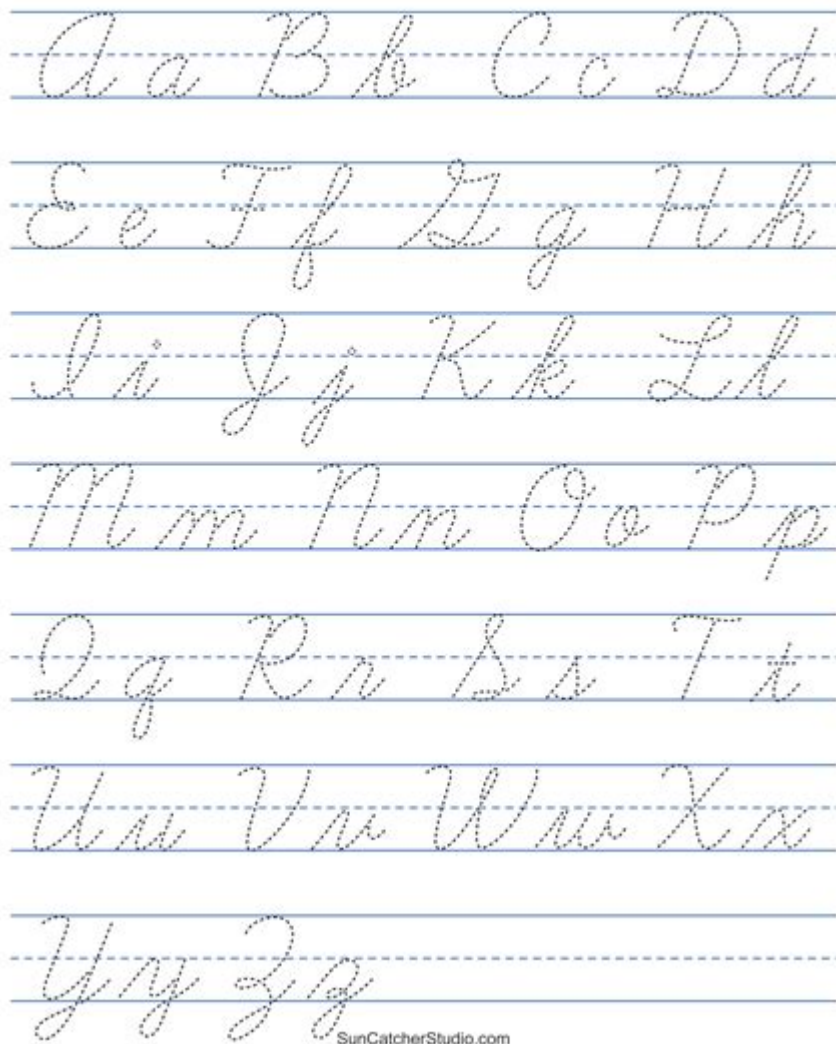 A a B b C c D d
E e F f G g H h
I i J j K k L l
M m N n O o P p
Q q R r S s T t
U u V v W w X x
Y y Z z
SunCatcherStudio.com